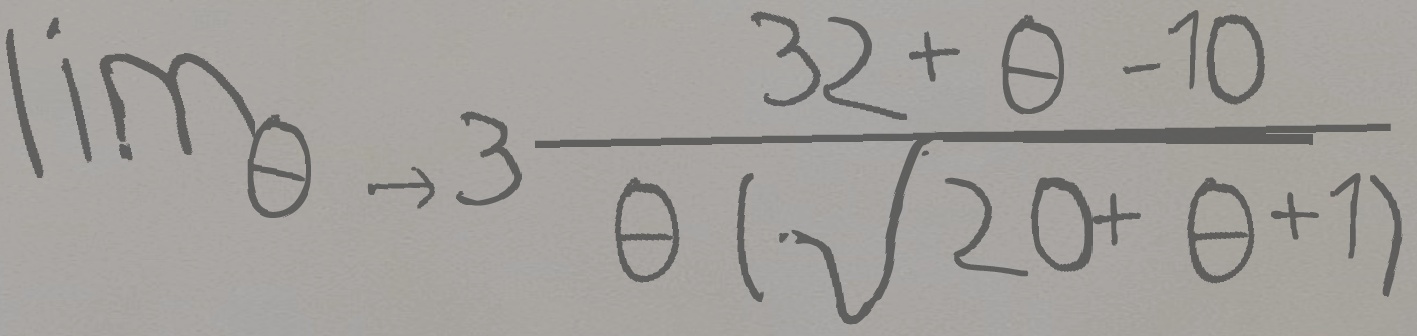 lim θ → 3 \frac{32 + θ - 10}{θ (\sqrt{20 + θ + 1})}